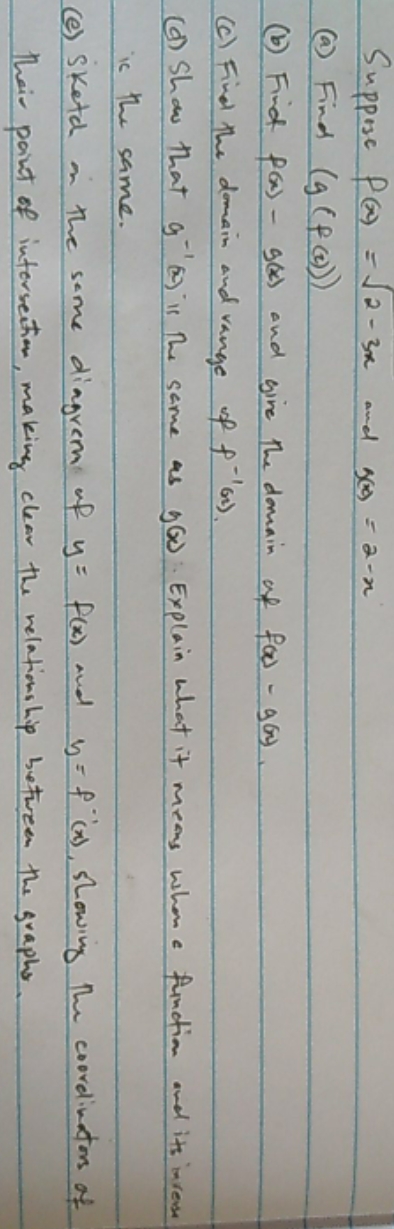 Suppose f(x) = √2-3x and g(x) = 2-x
(a) Find (g(f(x)))
(b) Find f(x) - g(x) and give the domain of f(x) - g(x).
(c) Find the domain and range of f⁻¹(x).
(d) Show that g⁻¹(x) is the same as g(x). Explain what it means when a function and its inverse
is the same.
(e) Sketch on the same diagram of y = f(x) and y = f⁻¹(x), showing the coordinates of
their point of intersection, making clear the relationship between the graphs.